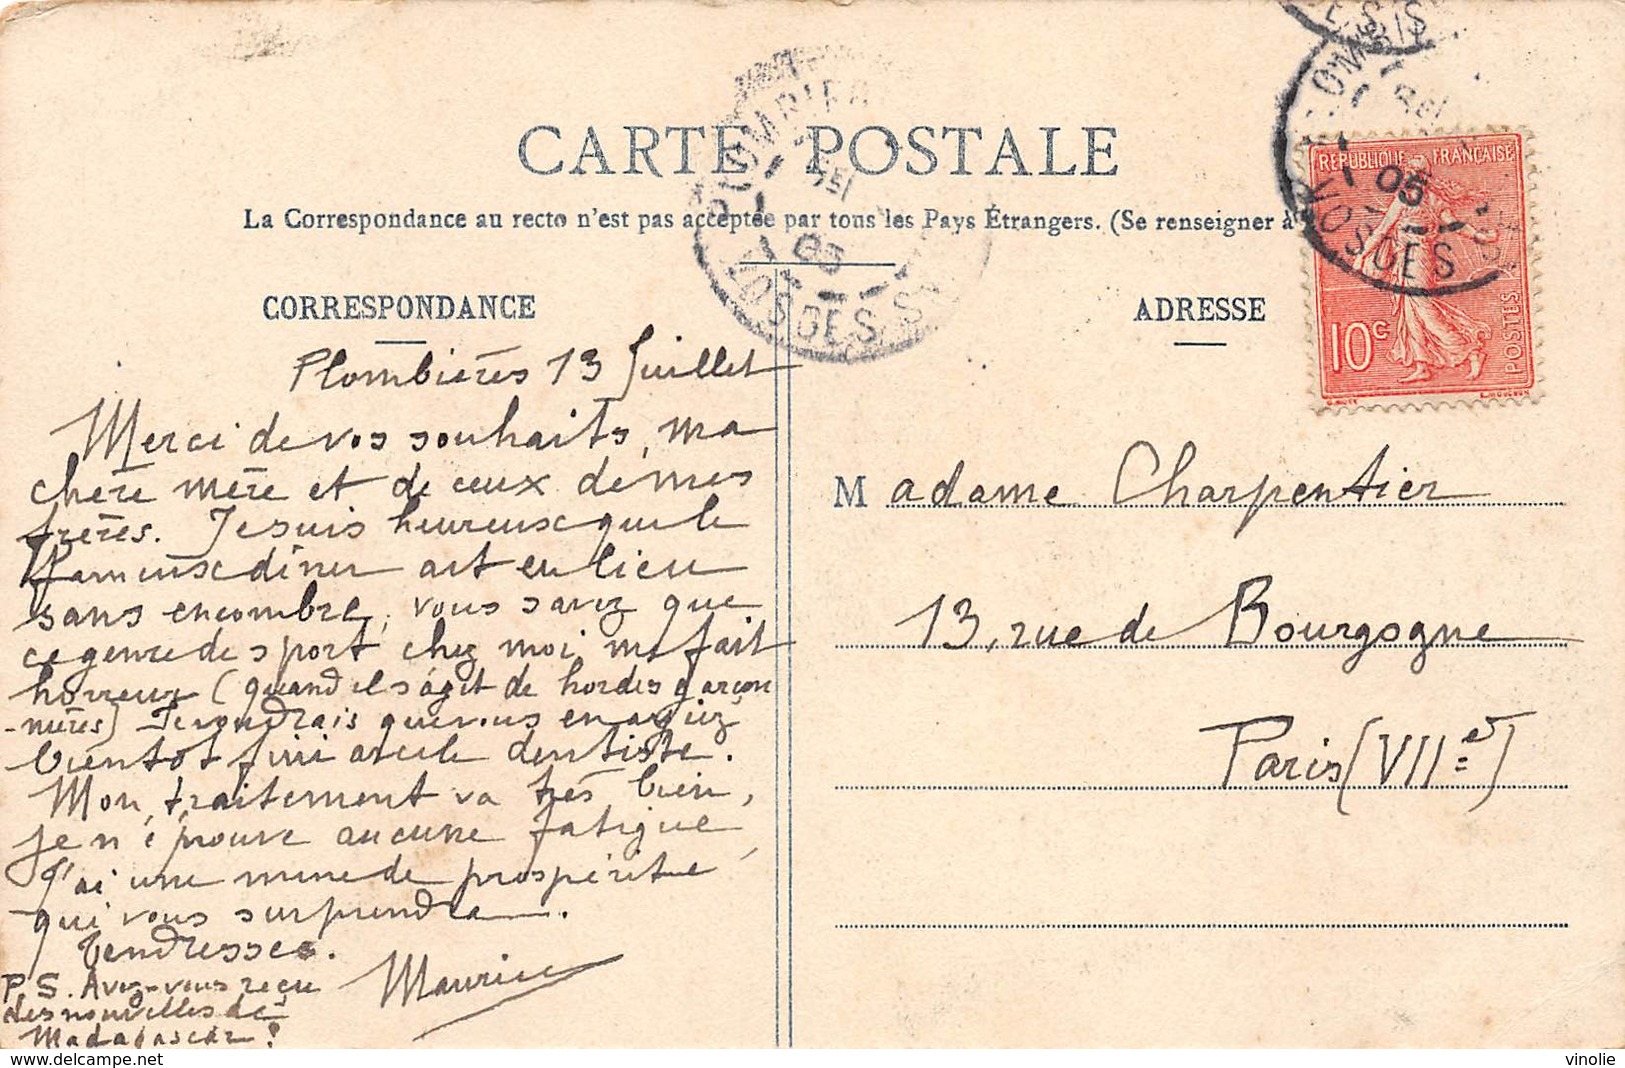 CARTE POSTALE
La Correspondance au recto n'est pas acceptée par tous les Pays Étrangers. (Se renseigner à
CORRESPONDANCE
Plombières 13 Juillet
Merci de vos souhaits, ma
chère mère et de ceux de mes
frères. Je suis heureuse que le
fameux dîner ait eu lieu
sans encombre, vous savez que
ce genre de sport chez moi me fait
horreur (quand il s'agit de hordes garçon
-nières) Je voudrais que vous en ayiez
bientôt fini avec le dentiste.
Mon traitement va très bien,
je n'éprouve aucune fatigue,
j'ai une mine de prospérité
qui vous surprendra.
Tendresses.
Maurice
P.S. Avez-vous reçu
des nouvelles de
Madagascar?
ADRESSE
Madame Charpentier
13, rue de Bourgogne
Paris (VIIe)
REPUBLIQUE FRANÇAISE
10c
POSTES
PLOMBIERES
05
VOSGES
05
VOSGES
vinolie